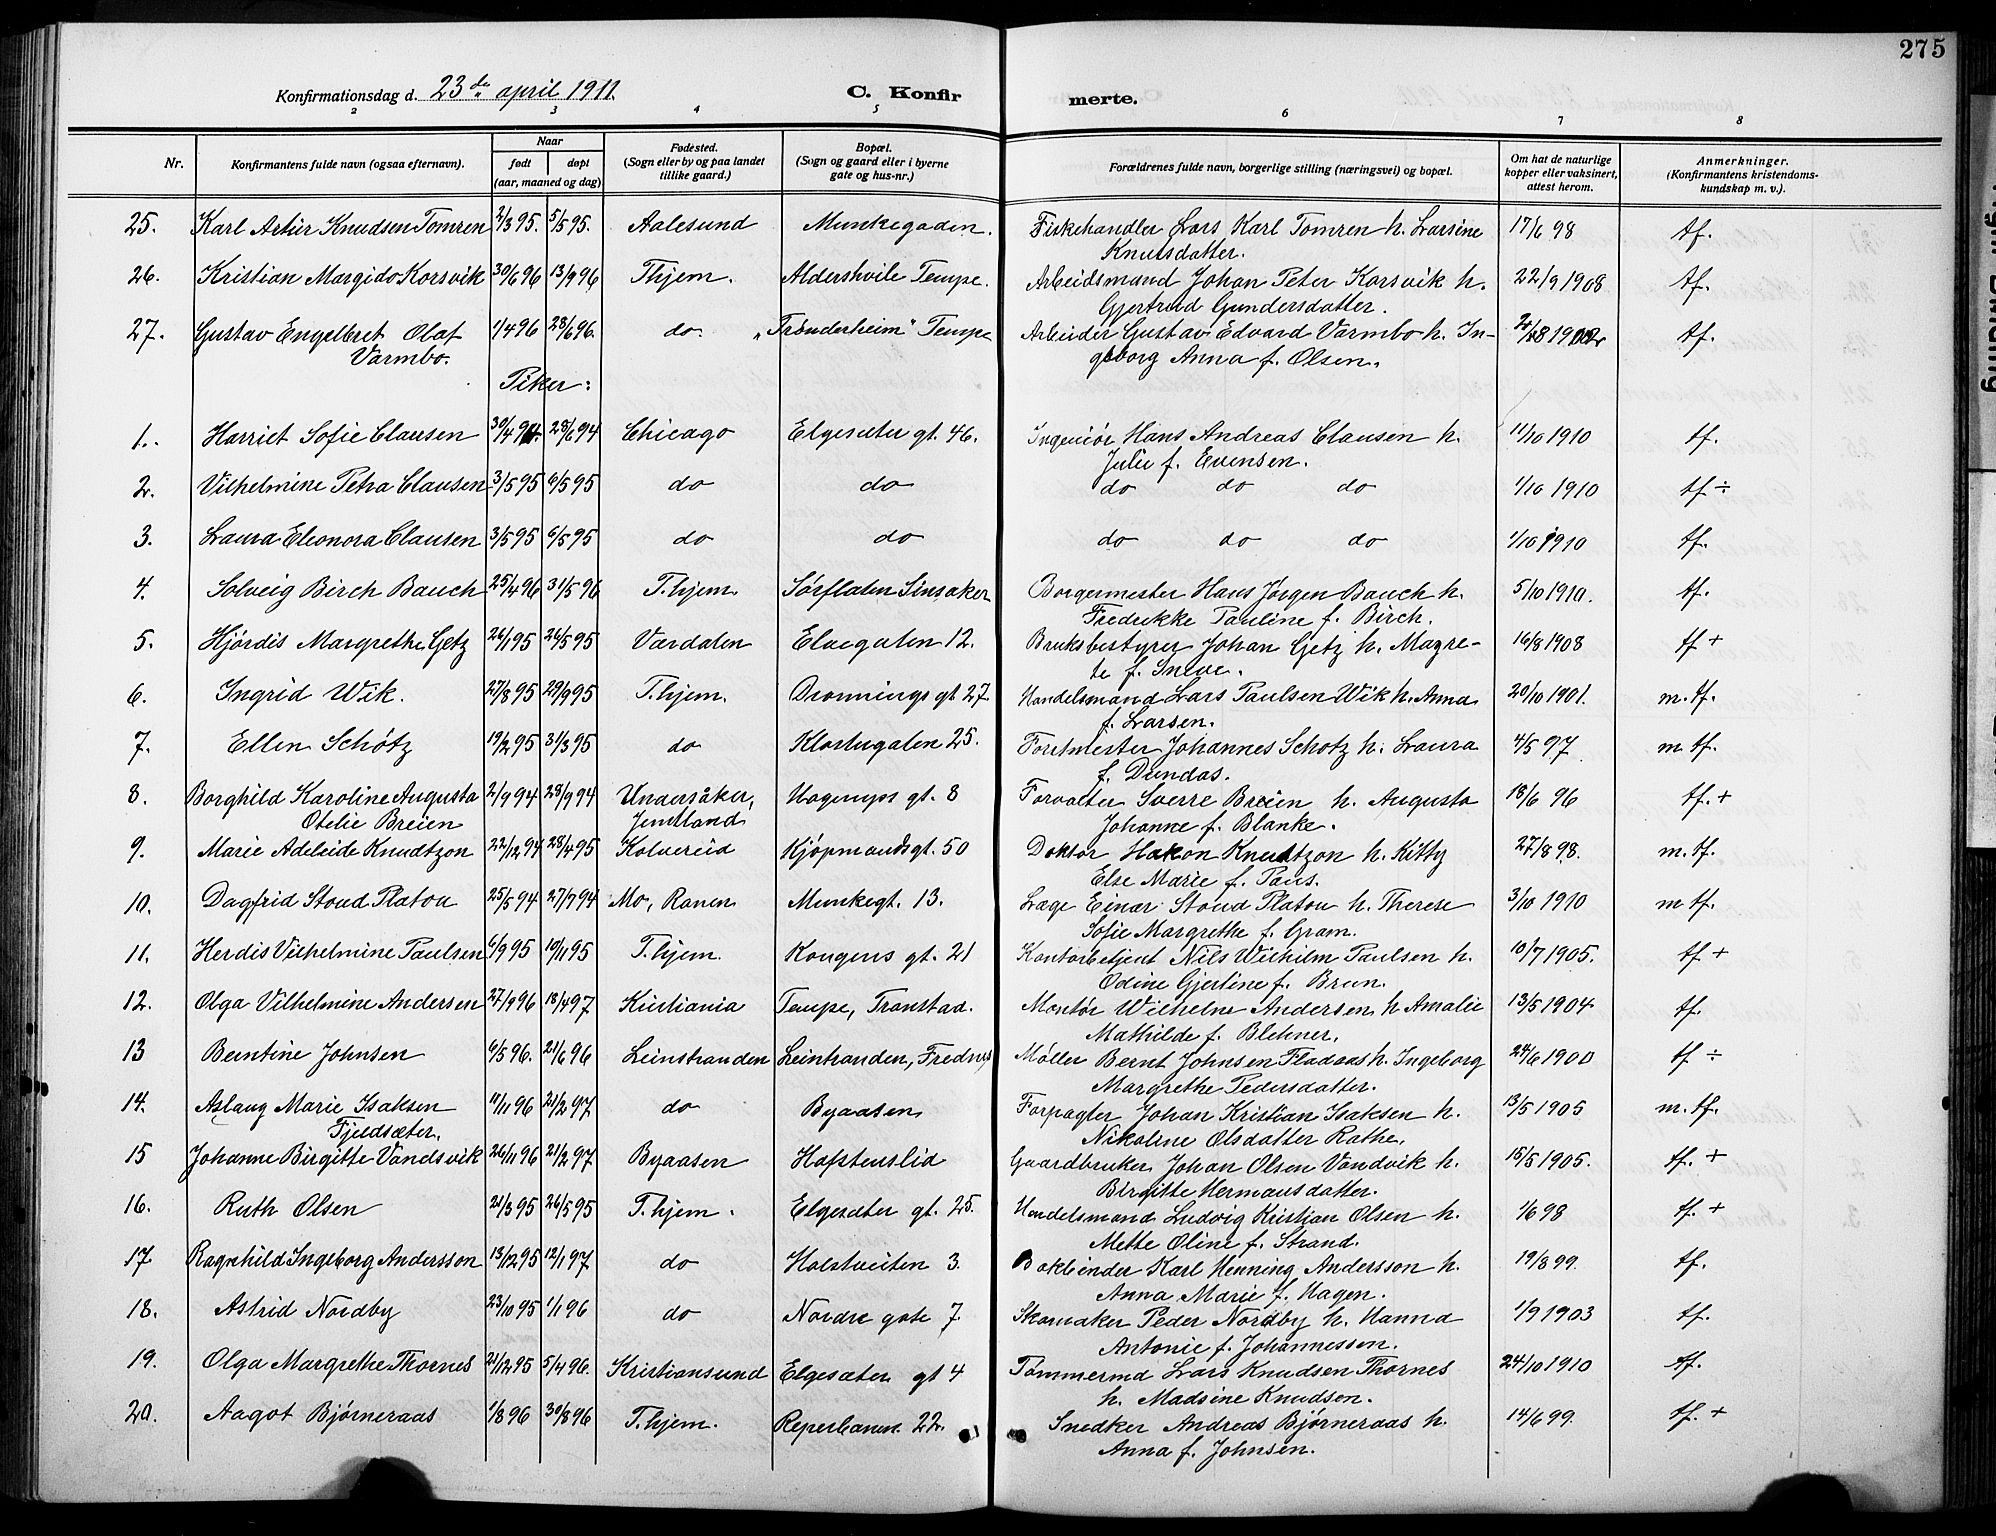 275
Konfirmationsdag d. 23de april 1911.
C. Konfirmerte.
2 3 4 5 6 7 8
Nr. Konfirmantens fulde navn (ogsaa efternavn). Naar født døpt (aar, maaned og dag) Fødested. (Sogn eller by og paa landet tillike gaard.) Bopæl. (Sogn og gaard eller i byerne gate og hus-nr.) Forældrenes fulde navn, borgerlige stilling (næringsvei) og bopæl. Om hat de naturlige kopper eller vaksinert, attest herom. Anmerkninger. (Konfirmantens kristendomskundskap m. v.).
25. Karl Artur Knudsen Tomren 2/3 95. 5/5 95. Aalesund Munkegaden. Fiskehandler Lars Karl Tomren h. Larsine 17/6 98 tf.
Knutsdatter.
26. Kristian Margido Korsvik 30/6 96 13/9 96 Thjem. Aldershvile Tempe. Arbeidsmand Johan Peter Korsvik h. 22/9 1908 tf.
Gjertrud Gundersdatter.
27. Gustav Engelbret Olaf 1/4 96 28/6 96. do. "Trönderheim" Tempe Arbeider Gustav Edvard Varmbo h. In- tf.
Varmbo. geborg Anna f. Olsen.
Piker:
1. Harriet Sofie Clausen 30/4 94. 28/6 94 Chicago Elgesæter gt. 46. Ingeniör Hans Andreas Clausen h. 11/10 1910 tf.
Julie f. Evensen.
2. Vilhelmine Petra Clausen 3/5 95 6/5 95 do do do do do 1/10 1910 tf ÷
3. Laura Eleonora Clausen 3/5 95 6/5 95 do do do do do 1/10 1910 tf.
4. Solveig Birch Bauch 25/4 96 31/5 96 T.hjem. Sørflaten Sinsaker Borgermester Hans Jørgen Bauch h. 5/10 1910. tf.
Fredrikke Pauline f. Birch.
5. Hjördis Margrethe Getz 26/1 95 26/5 95 Værdalen Elvegaten 12. Bruksbestyrer Johan Getz h. Magre- 16/8 1908 tf +
te f. Sneve.
6. Ingrid Wik. 27/8 95 29/9 95 T.hjem. Dronnings gt 27. Handelsmand Lars Paulsen Wik h. Anna 20/10 1901. m. tf.
f. Larsen.
7. Ellen Schötz 19/2 95 31/3 95 do Klostergaten 25. Forstmester Johannes Schotz h. Laura 4/5 97 m tf.
f. Dundas.
8. Borghild Karoline Augusta 2/9 94 28/9 94 Undersåker, Hagerups gt. 8 Forvalter Sverre Breien h. Augusta 18/6 96 tf. +
Otelie Breien Jemtland Johanne f. Blanke.
9. Marie Adeleide Knudtzon 22/12 94 28/4 95 Kolvereid Kjøpmandsgt. 50 Doktor Hakon Knudtzon h. Kitty 27/8 98. m. tf.
Else Marie f. Paus.
10. Dagfrid Stoud Platou 25/5 94 27/7 94 Mo, Ranen Munkegt. 13. Læge Einar Stoud Platou h. Therese 3/10 1910 m tf.
Sofie Margrethe f. Gram.
11. Herdis Vilhelmine Paulsen 6/9 95 10/11 95 T.hjem. Kongens gt. 21 Kontorbetjent Nils Wilhilm Paulsen h. 10/7 1905. tf +
Odine Gjertine f. Brun.
12. Olga Vilhelmine Andersen 27/9 96 18/4 97 Kristiania Tempe, Transtad. Montör Wilhelm Andersen h Amalie 13/5 1904 tf.
Mathilde f. Blehner.
13 Berntine Johnsen 6/5 96. 21/6 96 Leinstranden Leintranden, Frednes Møller Bernt Johnsen Fladaas h. Ingeborg 24/6 1900 tf ÷
Margrethe Pedersdatter.
14. Aslaug Marie Isaksen 11/11 96 21/2 97 do Byaasen Forpagter Johan Kristian Isaksen h. 13/5 1905 m. tf.
Fjeldsæter. Nikoline Olsdatter Rathe.
15 Johanne Birgitte Vandsvik 26/11 96 21/2 97 Byaasen Hafstenslid Gaardbruker Johan Olsen Vandvik h. 15/5 1905. tf. +
Birgitte Hermansdatter.
16. Ruth Olsen 21/3 95 26/5 95 T.hjem. Elgesæter gt. 25. Handelsmand Ludvig Kristian Olsen h. 1/6 98 tf. +
Mette Oline f. Strand.
17. Ragnhild Ingeborg Andersson 13/12 95 12/1 97 do Holstveiten 3. Bokbinder Karl Henning Andersson h. 19/8 99. tf.
Anna Marie f. Hagen.
18. Astrid Nordby 23/10 95 1/1 96 do Nordre gate 7. Skomaker Peder Nordby h. Hanna 1/9 1903 tf.
Antonie f. Johannessen.
19. Olga Margrethe Thornes 21/12 95 5/4 96. Kristiansund Elgesæter gt 4 Tømmermd Lars Knudsen Thornes 24/10 1910 tf.
h. Madsine Knudsen.
20. Aagot Bjørneraas 1/8 96 30/8 96 T.hjem. Reperbanen 22. Snedker Andreas Bjørneraas h. 14/6 99. tf. +
Anna f. Johnsen.